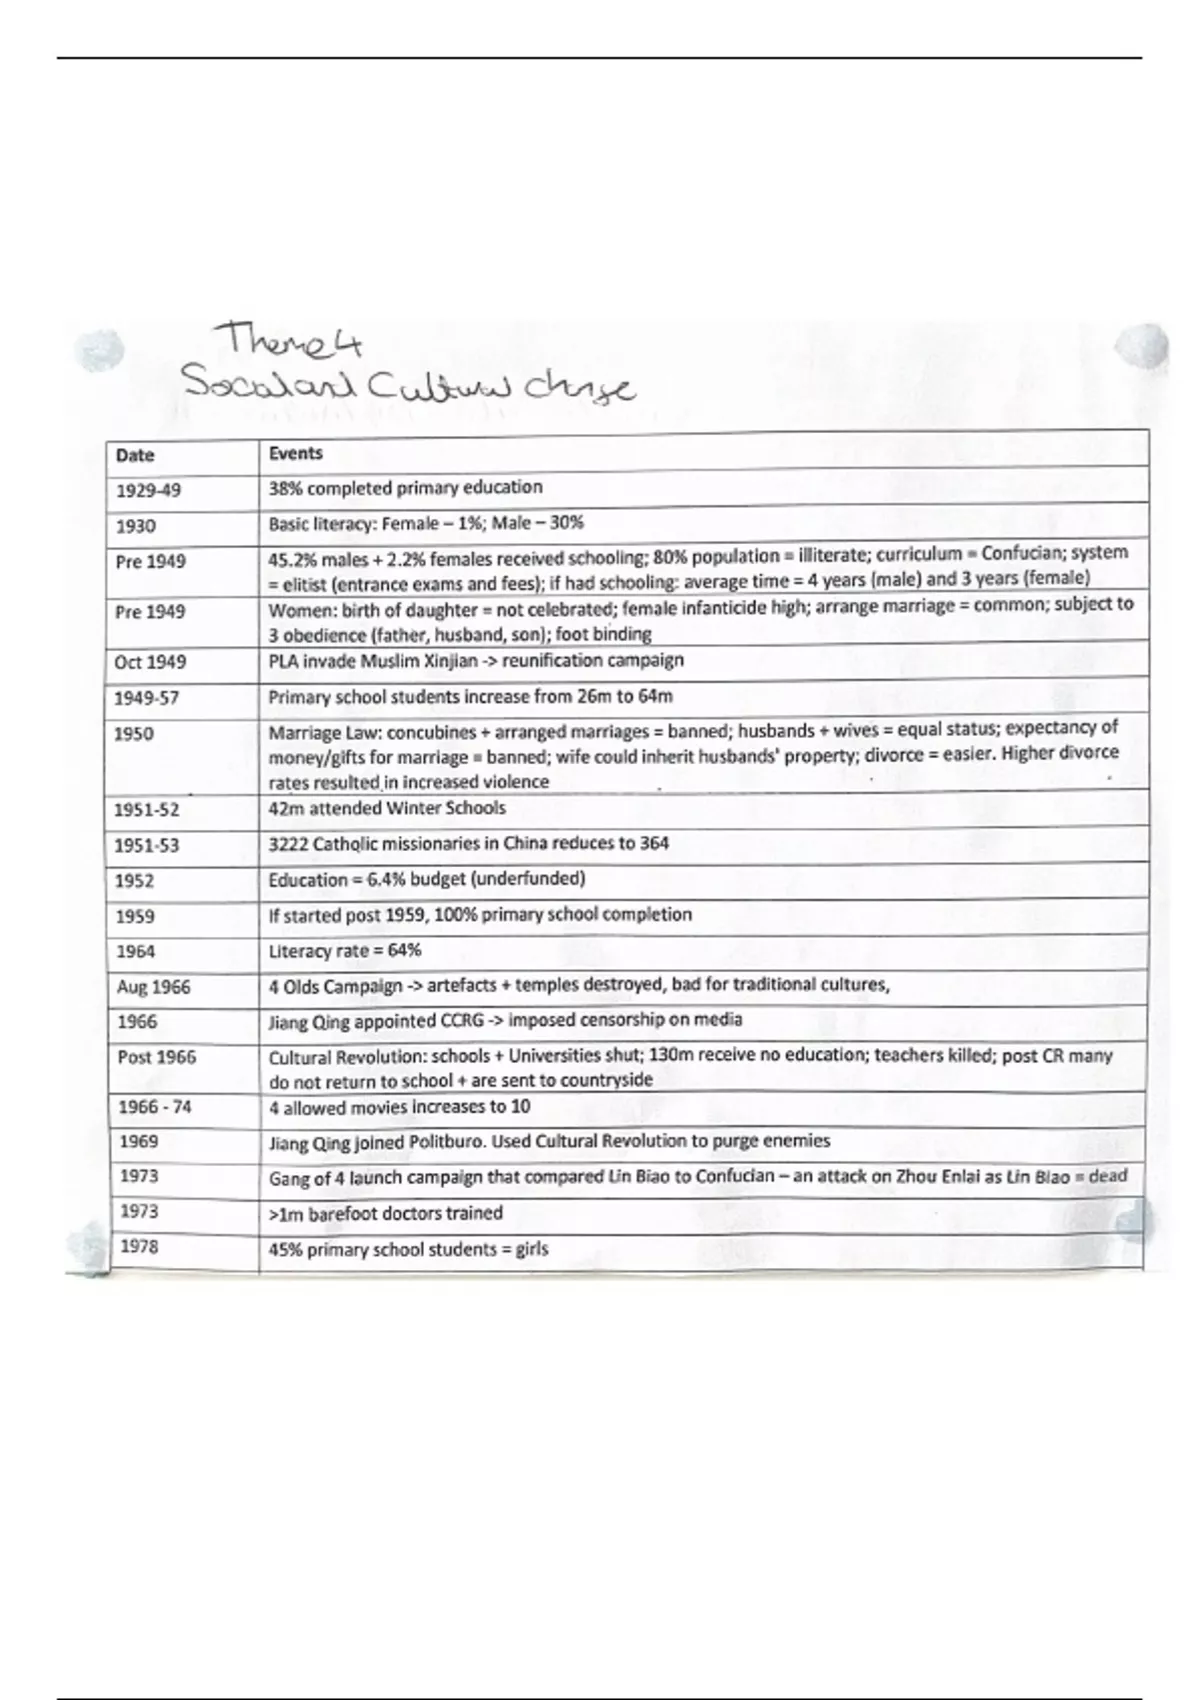 Theme 4
Social and Cultural change
Date Events
1929-49 38% completed primary education
1930 Basic literacy: Female – 1%; Male – 30%
Pre 1949 45.2% males + 2.2% females received schooling; 80% population = illiterate; curriculum = Confucian; system
= elitist (entrance exams and fees); if had schooling: average time = 4 years (male) and 3 years (female)
Pre 1949 Women: birth of daughter = not celebrated; female infanticide high; arrange marriage = common; subject to
3 obedience (father, husband, son); foot binding
Oct 1949 PLA invade Muslim Xinjian -> reunification campaign
1949-57 Primary school students increase from 26m to 64m
1950 Marriage Law: concubines + arranged marriages = banned; husbands + wives = equal status; expectancy of
money/gifts for marriage = banned; wife could inherit husbands' property; divorce = easier. Higher divorce
rates resulted in increased violence
1951-52 42m attended Winter Schools
1951-53 3222 Catholic missionaries in China reduces to 364
1952 Education = 6.4% budget (underfunded)
1959 If started post 1959, 100% primary school completion
1964 Literacy rate = 64%
Aug 1966 4 Olds Campaign -> artefacts + temples destroyed, bad for traditional cultures,
1966 Jiang Qing appointed CCRG -> imposed censorship on media
Post 1966 Cultural Revolution: schools + Universities shut; 130m receive no education; teachers killed; post CR many
do not return to school + are sent to countryside
1966 - 74 4 allowed movies increases to 10
1969 Jiang Qing joined Politburo. Used Cultural Revolution to purge enemies
1973 Gang of 4 launch campaign that compared Lin Biao to Confucian – an attack on Zhou Enlai as Lin Biao = dead
1973 >1m barefoot doctors trained
1978 45% primary school students = girls